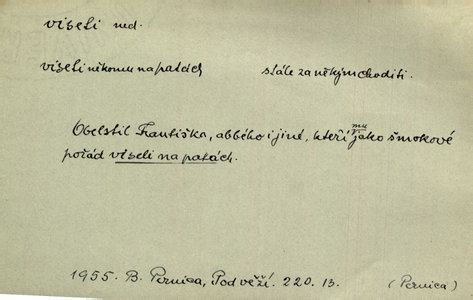 viseti ned.
viseti někomu na patách stále za někým choditi.
Obelstil Františka, abbého i jiné, kteří mu jako šmokové
pořád viseli na patách.
1955. B. Pernica, Pod věží. 220. 13. (Pernica)